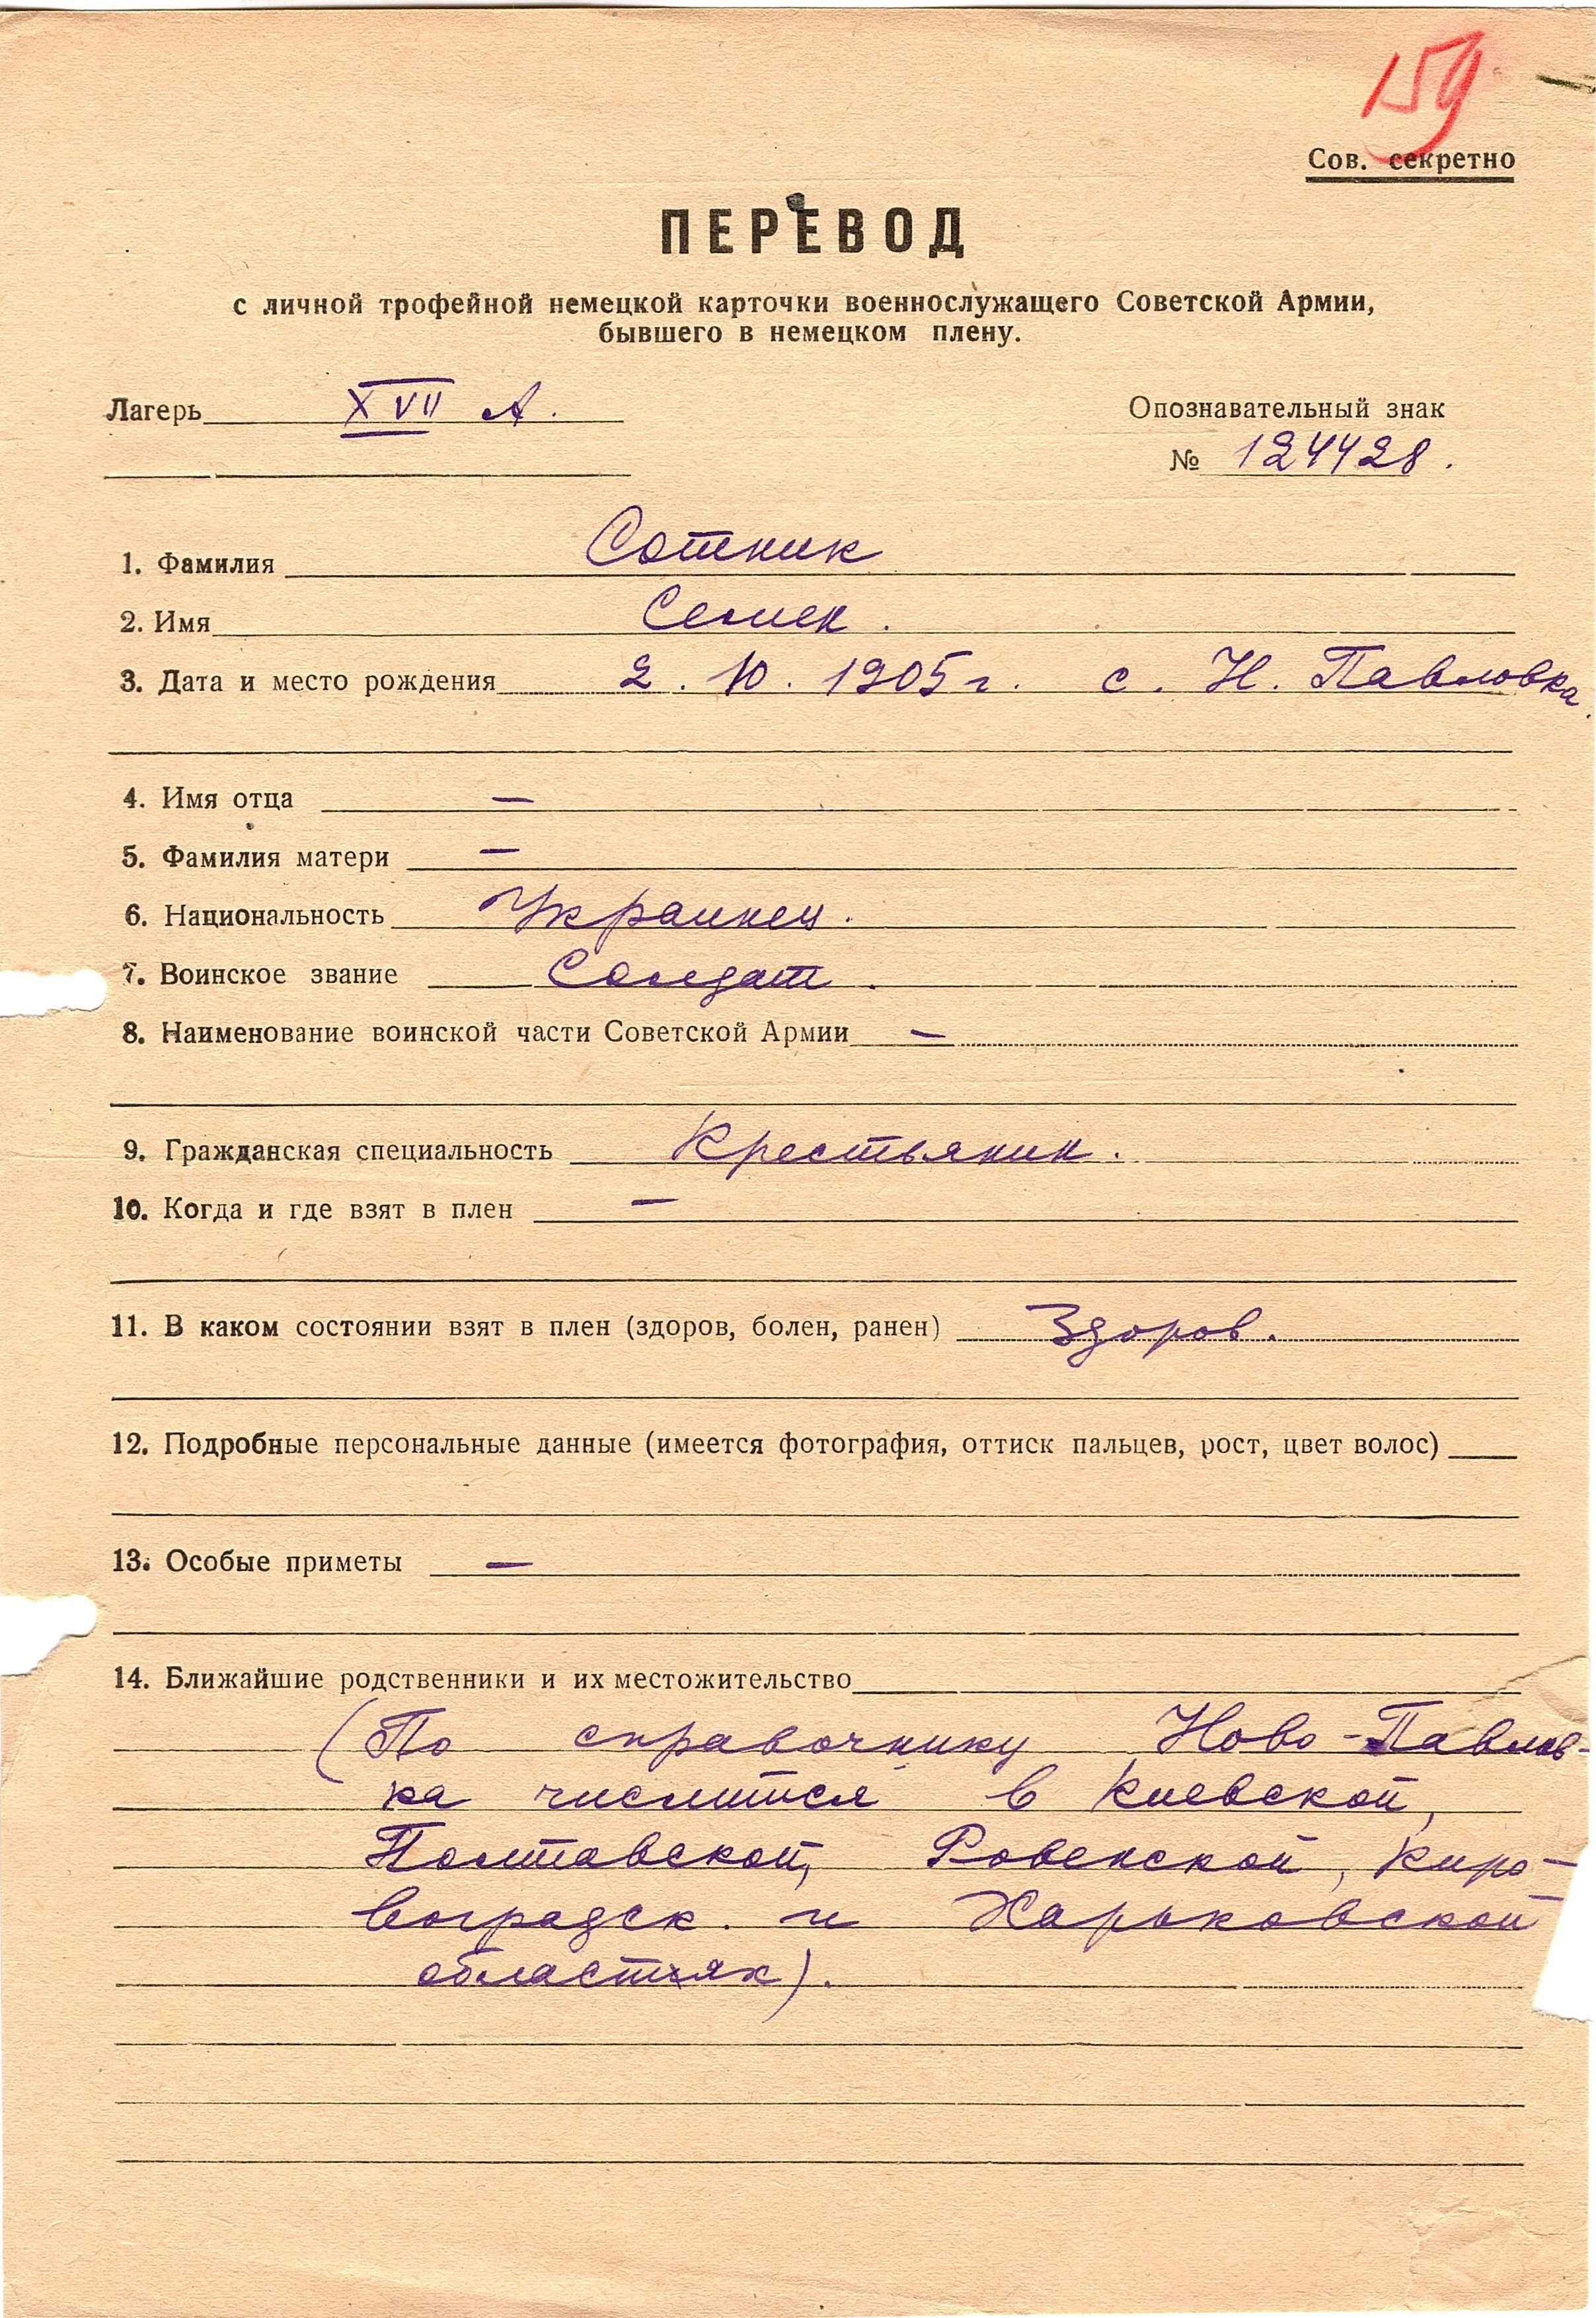 159
Сов. секретно
ПЕРЕВОД
с личной трофейной немецкой карточки военнослужащего Советской Армии,
бывшего в немецком плену.
Лагерь XVII А.
Опознавательный знак
№ 124428.
1. Фамилия Сотник
2. Имя Семен.
3. Дата и место рождения 2. 10. 1905 г. с. Н. Павловка.
4. Имя отца —
5. Фамилия матери —
6. Национальность Украинец.
7. Воинское звание Солдат.
8. Наименование воинской части Советской Армии —
9. Гражданская специальность Крестьянин.
10. Когда и где взят в плен —
11. В каком состоянии взят в плен (здоров, болен, ранен) Здоров.
12. Подробные персональные данные (имеется фотография, оттиск пальцев, рост, цвет волос)
13. Особые приметы —
14. Ближайшие родственники и их местожительство
(По справочнику Ново-Павлов-
ка числится в Киевской,
Полтавской, Ровенской, Киро-
воградск. и Харьковской
областях).